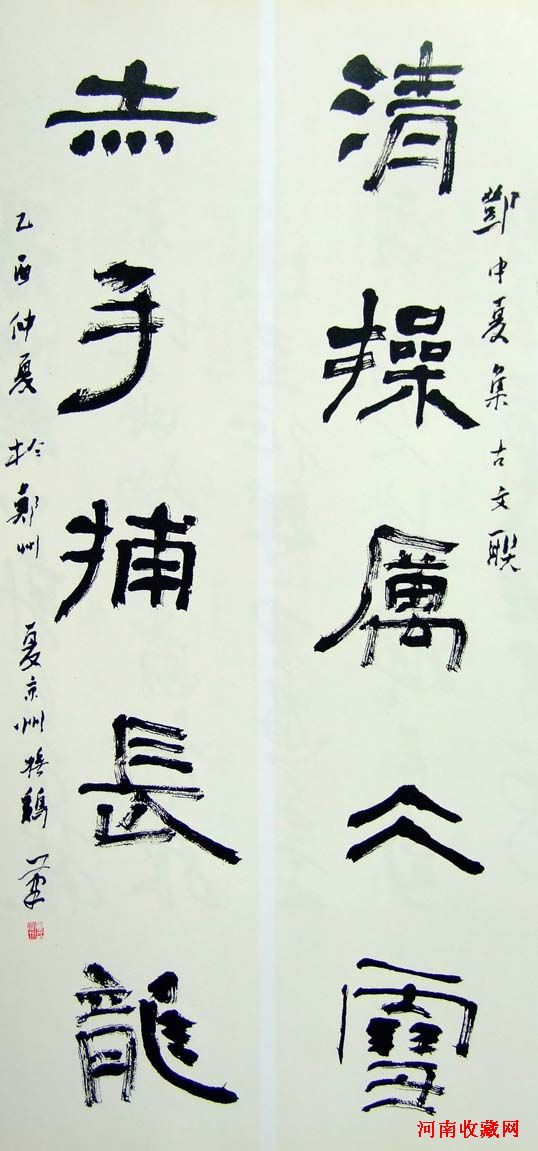 鄧中夏集古文聯
清操厲仌雪
赤手捕長龍
乙酉仲夏於鄭州 夏京州
河南收藏网